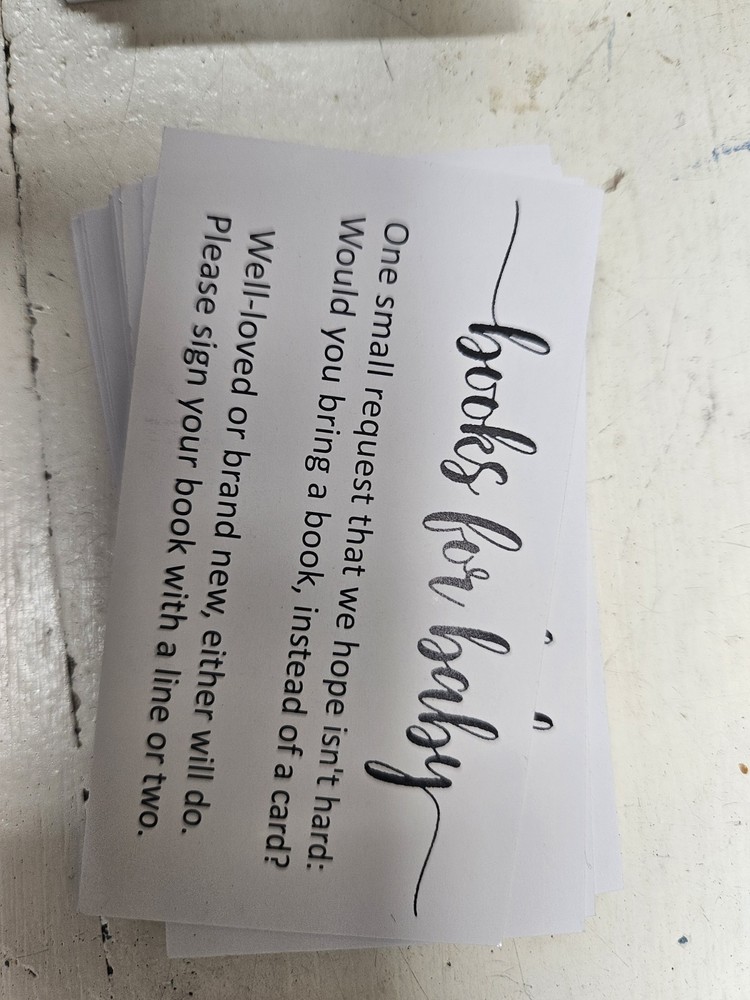 books for baby
One small request that we hope isn't hard:
Would you bring a book, instead of a card?
Well-loved or brand new, either will do.
Please sign your book with a line or two.